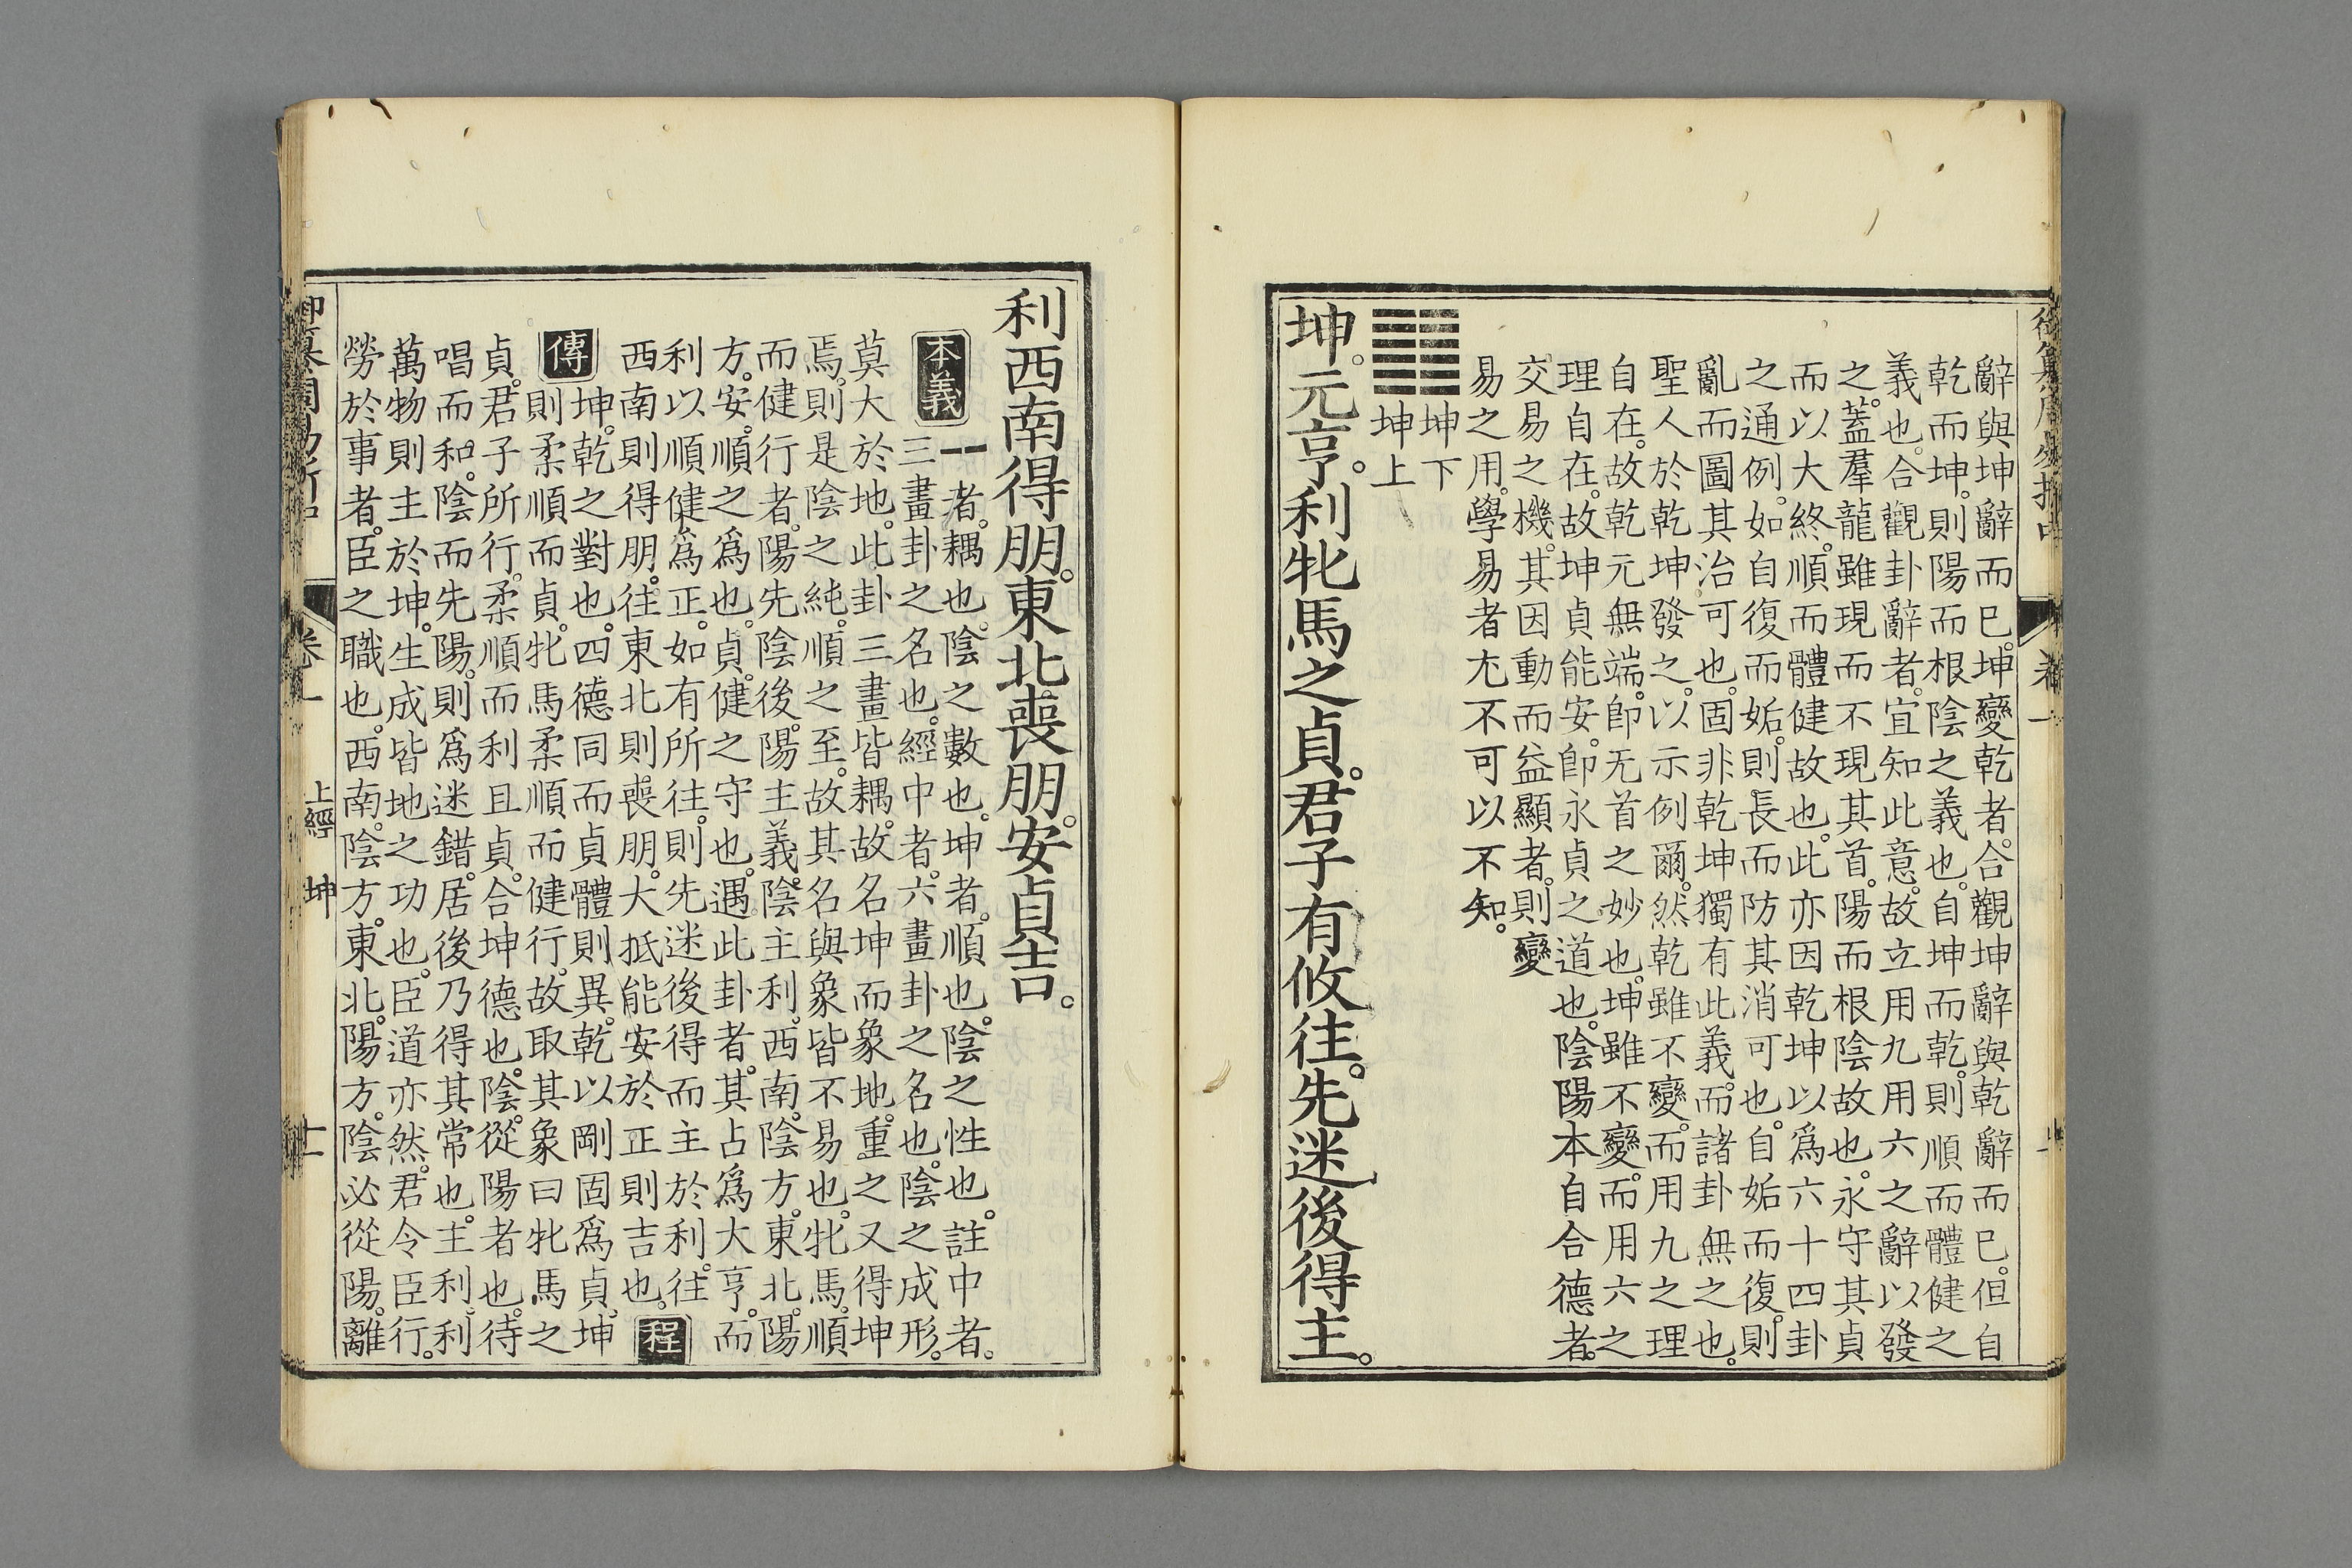 御纂周易折中 卷一
辭與坤辭而巳。坤變乾者。合觀坤辭與乾辭而巳。但自
乾而坤。則陽而根陰之義也。自坤而乾。則順而體健之
義也。合觀卦辭者。宜知此意。故立用九用六之辭以發
之。蓋羣龍雖現而不現其首。陽而根陰故也。永守其貞
而以大終。順而體健故也。此亦因乾坤以爲六十四卦
之通例。如自復而姤。則長而防其消可也。自姤而復。則
亂而圖其治可也。固非乾坤獨有此義。而諸卦無之也。
聖人於乾坤發之。以示例爾。然乾雖不變。而用九之理
自在。故乾元無端。卽无首之妙也。坤雖不變。而用六之
理自在。故坤貞能安。卽永貞之道也。陰陽本自合德者。
交易之機。其因動而益顯者。則變
易之用。學易者尤不可以不知。
坤下
坤上
坤。元亨。利牝馬之貞。君子有攸往。先迷後得主。
利西南得朋。東北喪朋。安貞吉。
本義 ⚋者。耦也。陰之數也。坤者。順也。陰之性也。註中者。
三畫卦之名也。經中者。六畫卦之名也。陰之成形。
莫大於地。此卦三畫皆耦。故名坤而象地。重之又得坤
焉。則是陰之純。順之至。故其名與象皆不易也。牝馬。順
而健行者。陽先陰後。陽主義。陰主利。西南。陰方。東北。陽
方。安。順之爲也。貞。健之守也。遇此卦者。其占爲大亨。而
利以順健爲正。如有所往。則先迷後得而主於利。往
西南則得朋。往東北則喪朋。大抵能安於正則吉也。程
傳 坤。乾之對也。四德同而貞體則異。乾以剛固爲貞。坤
則柔順而貞。牝馬柔順而健行。故取其象曰牝馬之
貞。君子所行。柔順而利且貞。合坤德也。陰。從陽者也。待
唱而和。陰而先陽。則爲迷錯。居後乃得其常也。主利。利
萬物則主於坤。生成皆地之功也。臣道亦然。君令臣行。
勞於事者。臣之職也。西南。陰方。東北。陽方。陰必從陽。離
御纂周易折中 卷一 上經 坤 十一